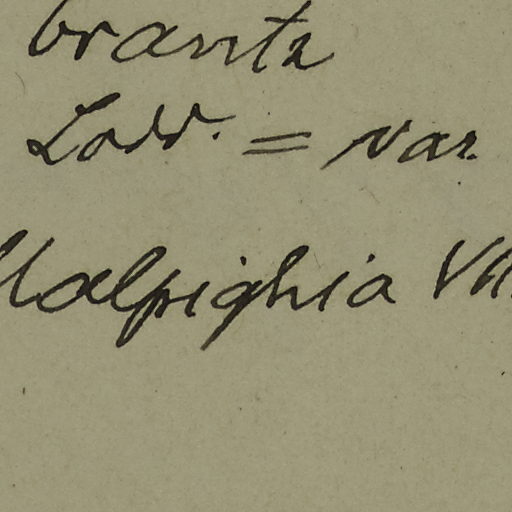 Crantz
Lodd. = var.
Malpighia VII